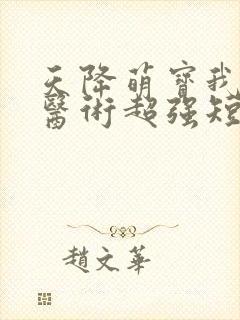 天降萌寶我
醫術超强短
趙文華